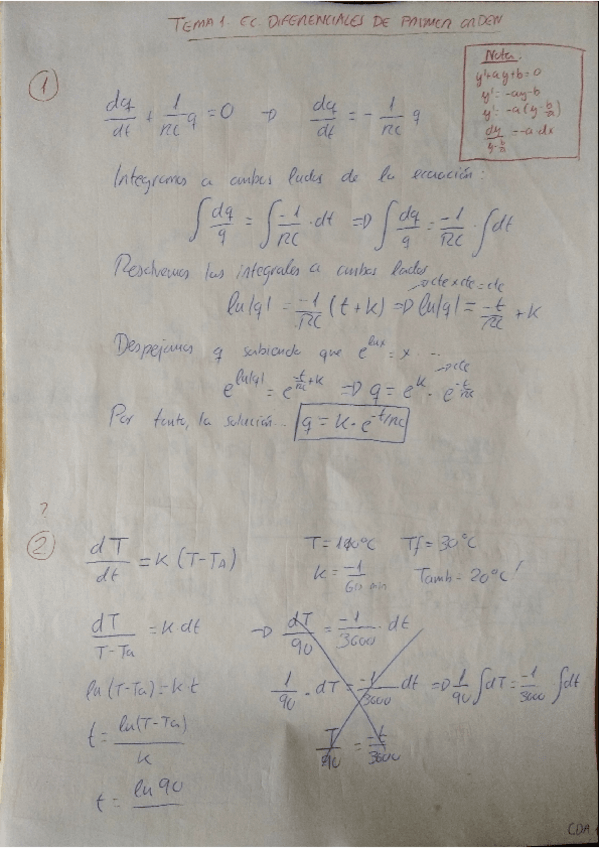 TEMA 1. EC. DIFERENCIALES DE PRIMER ORDEN
Nota:
y'+ay+b=0
y'=-ay-b
y'=-a(y-b/a)
dy/(y-b/a) = -a·dx
1
dq/dt + 1/RC q = 0 → dq/dt = -1/RC q
Integramos a ambos lados de la ecuación:
∫ dq/q = ∫ -1/RC · dt ⇒ ∫ dq/q = -1/RC · ∫ dt
Resolvemos las integrales a ambos lados
cte x cte = cte
ln|q| = -1/RC (t+k) ⇒ ln|q| = -t/RC + K
Despejamos q sabiendo que e^lnx = x ...
cte
e^ln|q| = e^(-t/RC + K) ⇒ q = e^K · e^(-t/RC)
Por tanto, la solución... q = K · e^(-t/RC)
?
2
dT/dt = K (T-TA) T = 100°C Tf = 30°C
K = -1/60 min Tamb = 20°C
dT/(T-Ta) = K·dt → dT/90 = -1/3600 · dt
ln(T-Ta) = K·t 1/90 · dT = -1/3600 dt ⇒ 1/90 ∫dT = -1/3600 ∫dt
t = ln(T-Ta)/K T/90 = -t/3600
t = ln 90
CDA